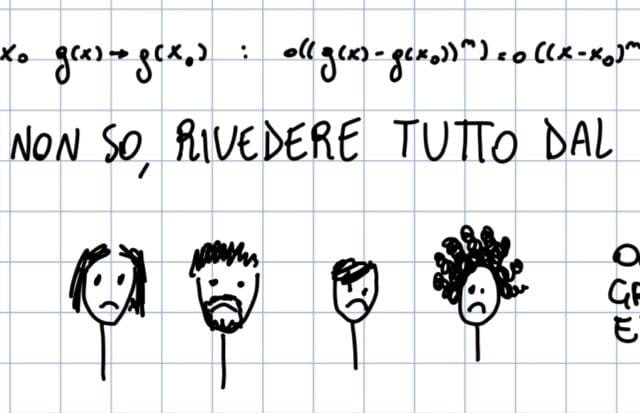 x₀ g(x) → g(x₀) : o((g(x) - g(x₀))ᵐ) = o((x-x₀)ᵐ
NON SO, RIVEDERE TUTTO DAL